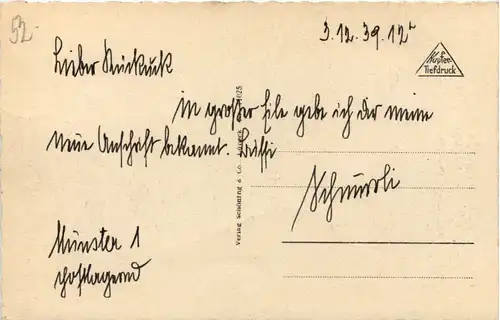 52.
3.12.39. 12h
Kupfer-
Tiefdruck
Lieber Kuckuck
in großer Eile gebe ich Dir meine
neue Anschrift bekannt. Bussi
Schnurrli
Münster 1
postlagernd
Verlag Schöning & Co., Lübeck